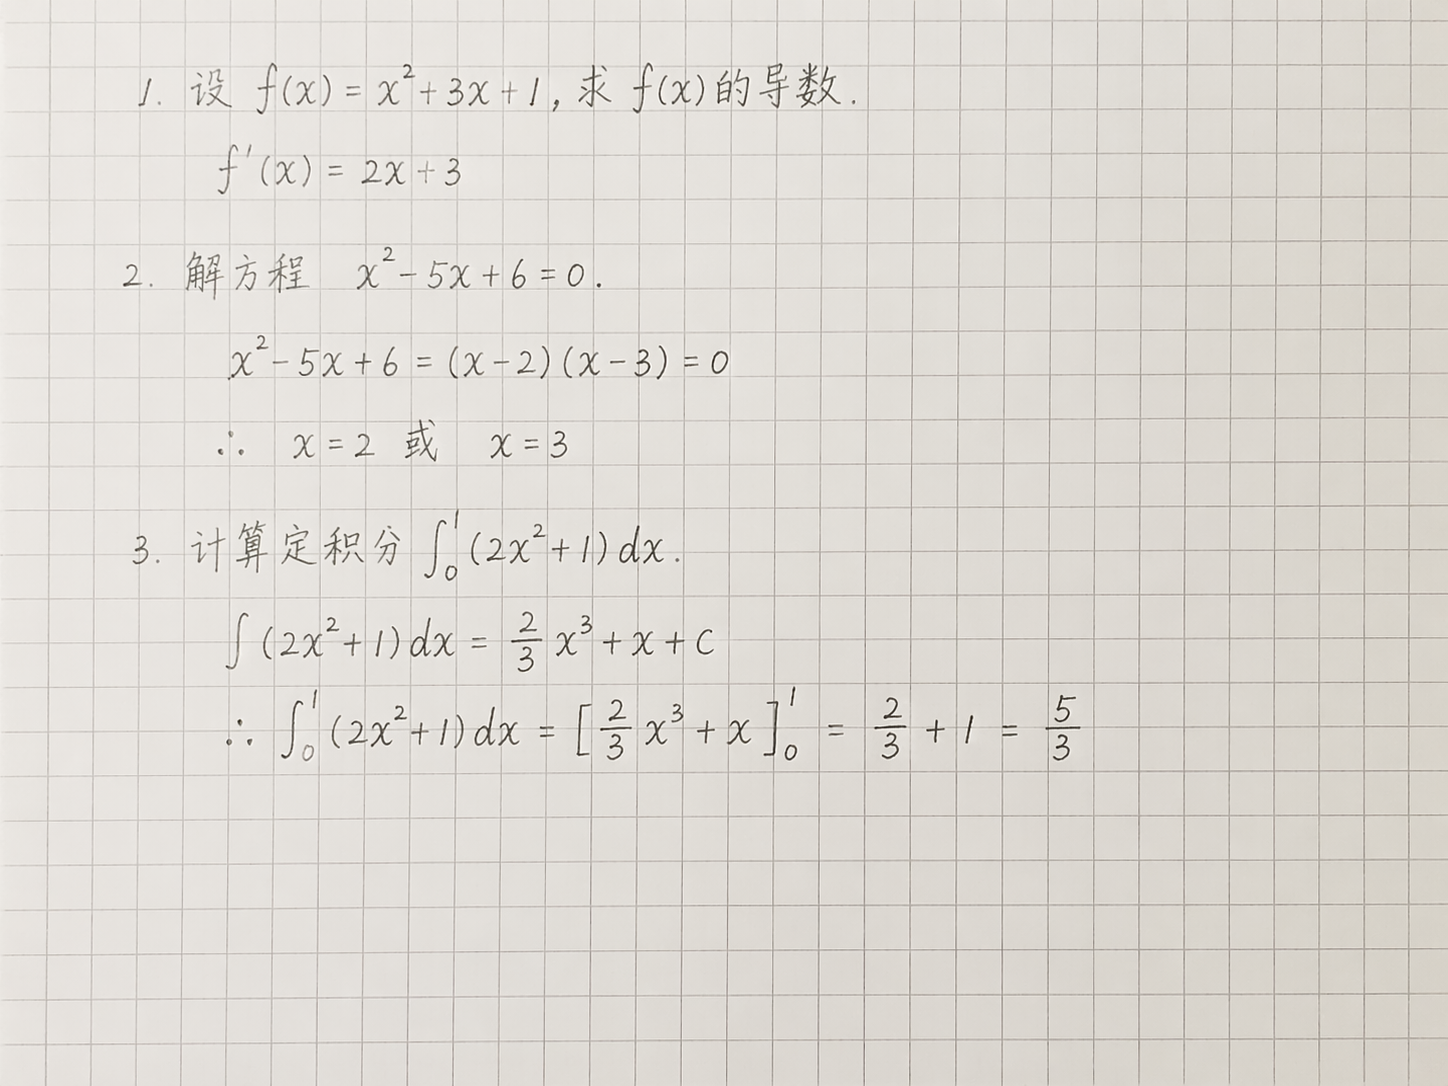 1. 设 f(x) = x² + 3x + 1, 求 f(x) 的导数.
f'(x) = 2x + 3
2. 解方程 x² - 5x + 6 = 0.
x² - 5x + 6 = (x - 2)(x - 3) = 0
∴ x = 2 或 x = 3
3. 计算定积分 ∫₀¹ (2x² + 1) dx.
∫ (2x² + 1) dx = 2/3 x³ + x + C
∴ ∫₀¹ (2x² + 1) dx = [2/3 x³ + x]₀¹ = 2/3 + 1 = 5/3